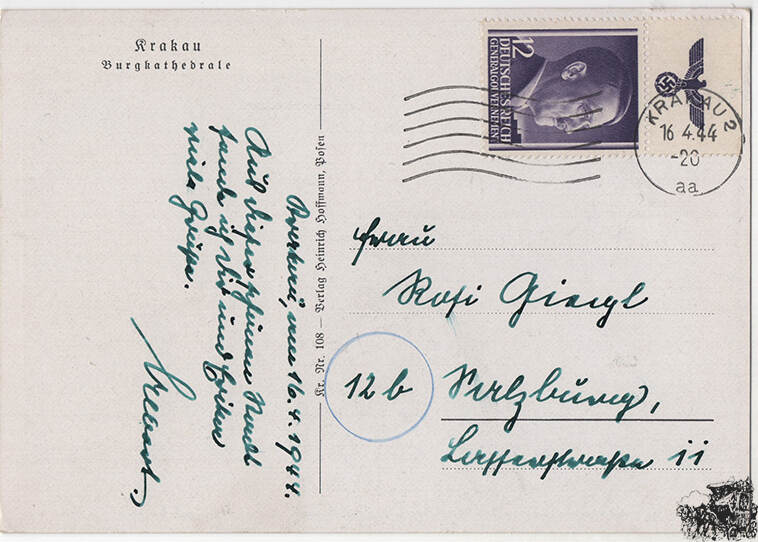 Krakau
Burgkathedrale
Krakau, am 16.4.1944.
Aus dieser schönen Stadt
sende ich Dir und
viele Grüße.
Kr. Nr. 108 — Verlag Heinrich Hoffmann, Posen
12
DEUTSCHES REICH
GENERALGOUVERNEMENT
KRAKAU 2
16.4.44
-20
aa
Frau
Rosi
12b Salzburg,
Lasserstraße 11